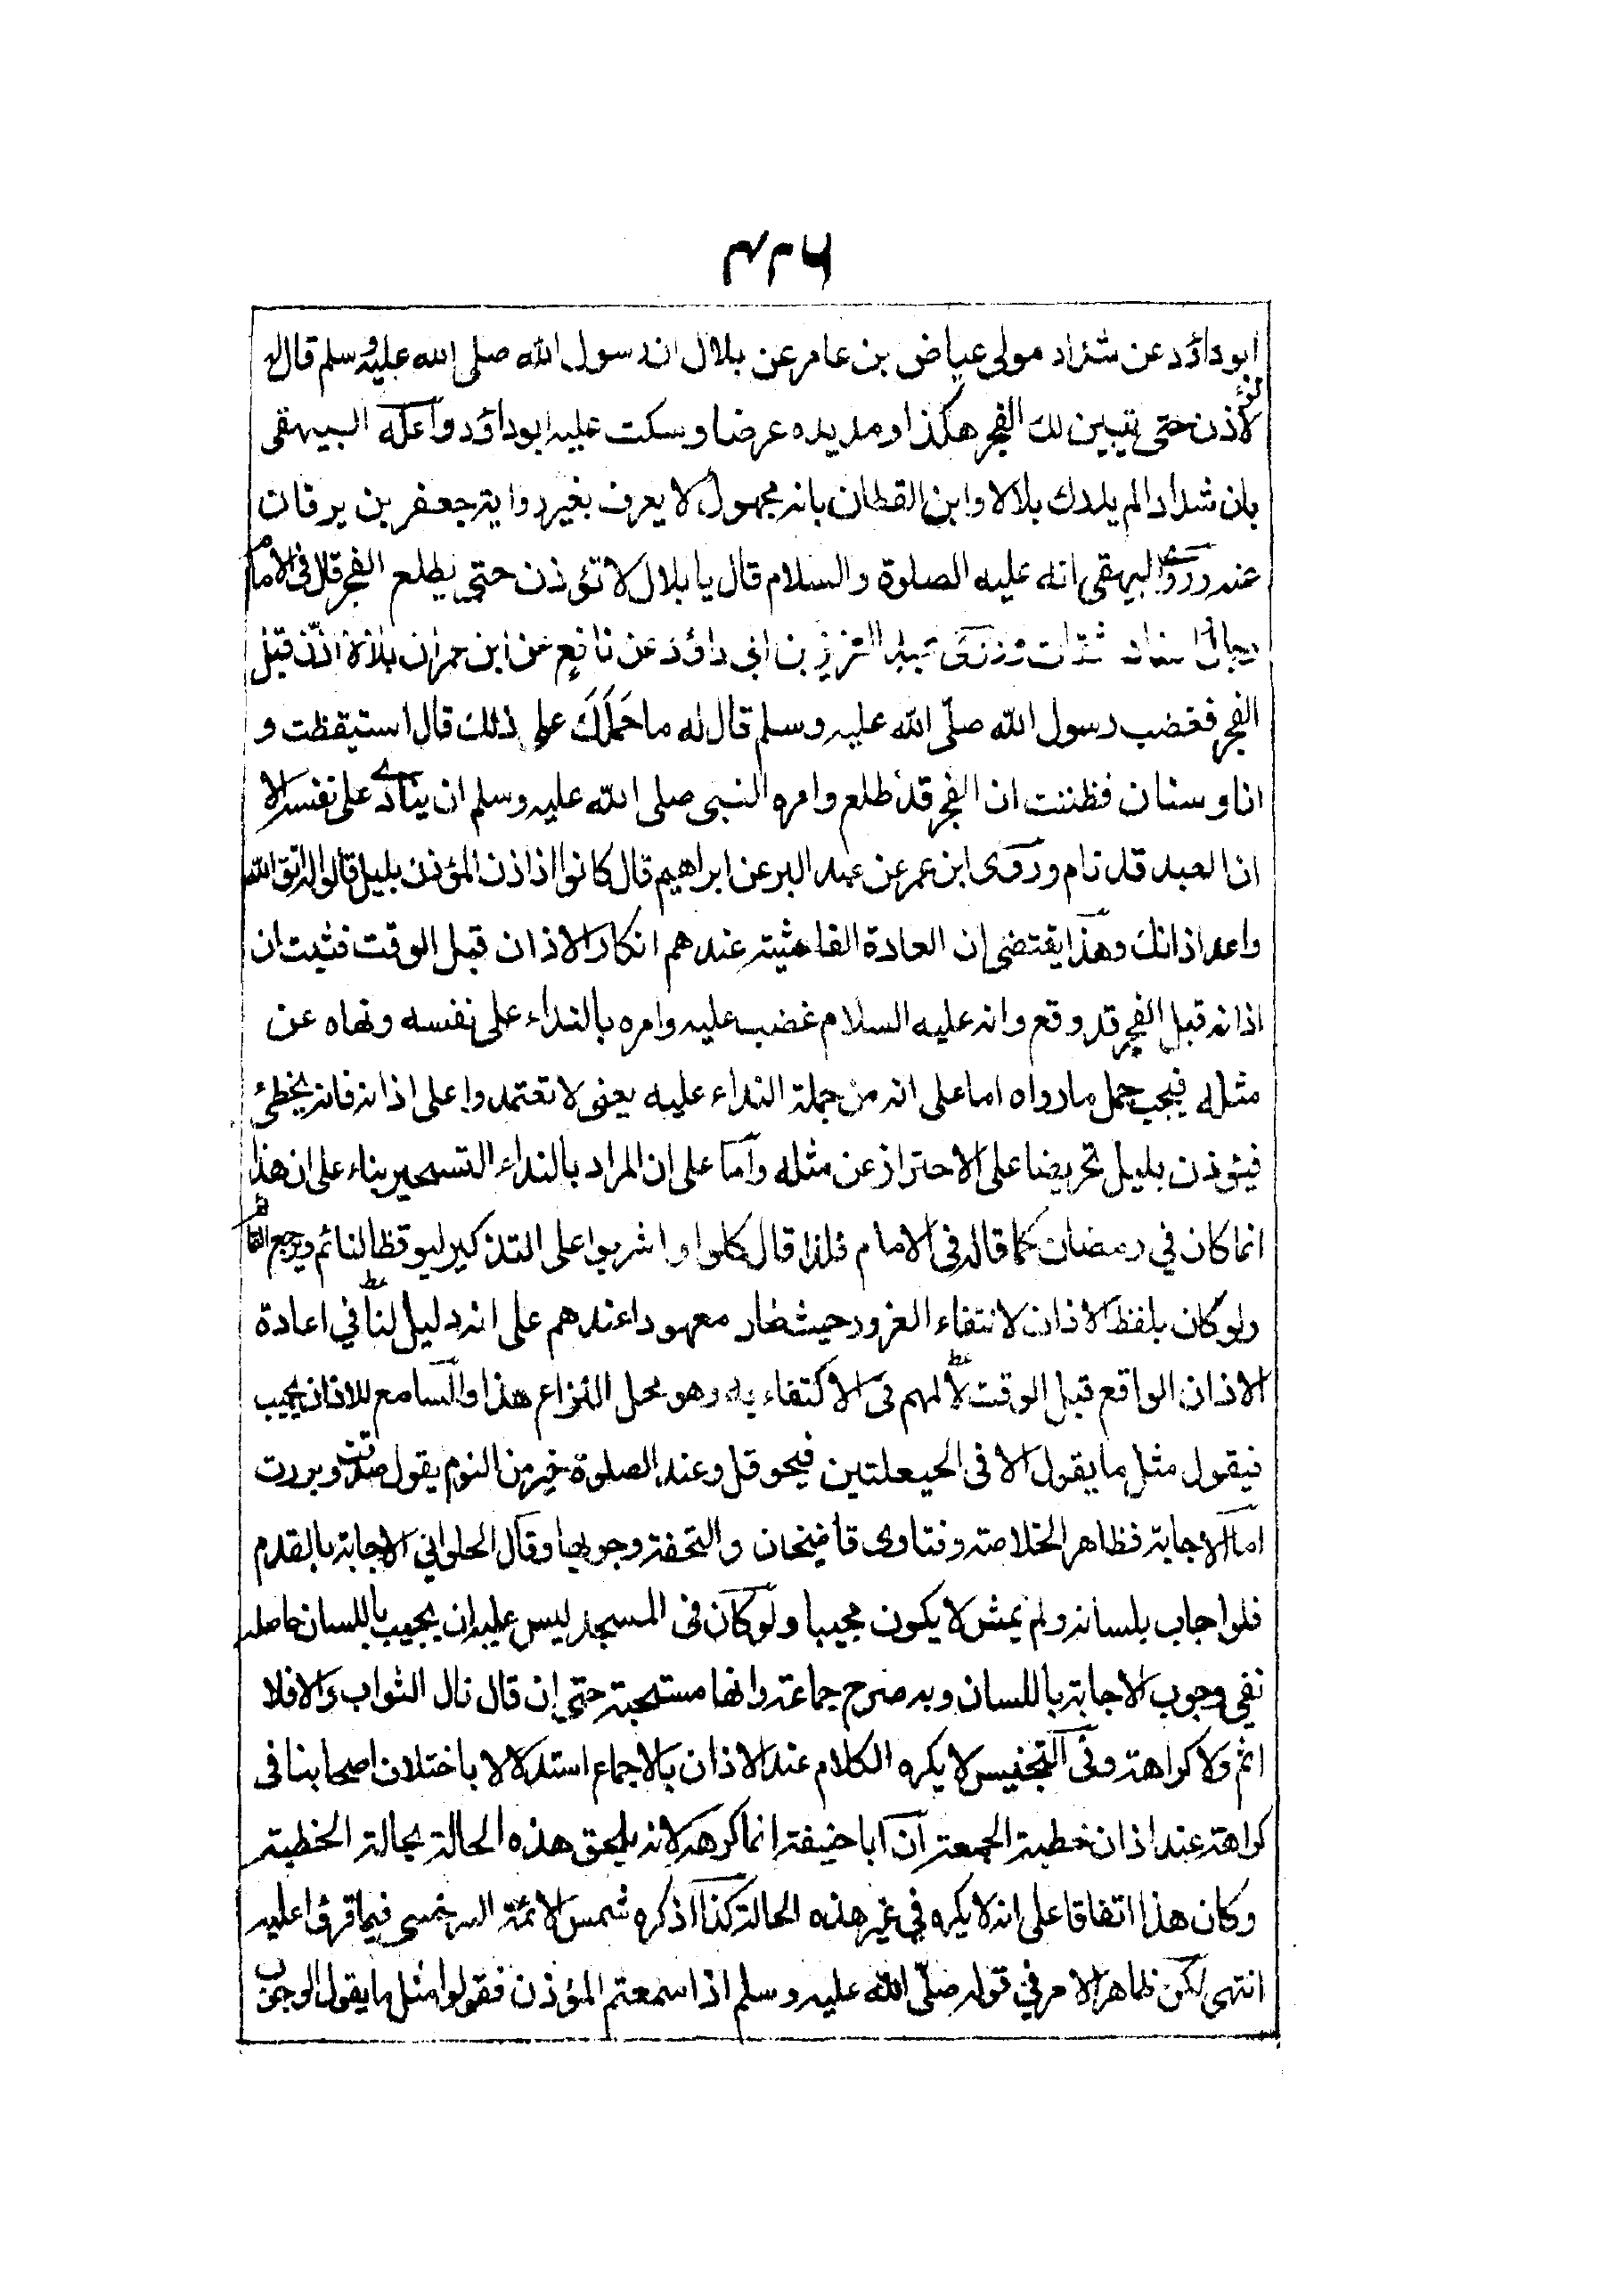 ٣٧٦
ابو داؤد عن شداد مولى عياض بن عامر عن بلال ان رسول الله صلى الله عليه وسلم قال له
لا تؤذن حتى يتبين لك الفجر هكذا ومد يده عرضا وسكت عليه ابو داؤد واعله البيهقى
بان شداد الم يدرك بلالا وابن القطان بانه مجهول لا يعرف بغير رواية جعفر بن برقان
عنه وروى البيهقى انه عليه الصلوة والسلام قال يا بلال لا تؤذن حتى يطلع الفجر قال فى الامام
رجال اسناده ثقات وروى عبد العزيز بن ابى داؤد عن نافع عن ابن عمران بلالا اذن قبل
الفجر فغضب رسول الله صلّى الله عليه وسلم قال له ما حَمَلَكَ على ذلك قال استيقظت و
انا وسنان فظننت ان الفجر قد طلع وامره النبى صلى الله عليه وسلم ان ينادى على نفسه الا
ان العبد قد نام وروى ابن عمر عن عبد البر عن ابراهيم قال كانوا اذا اذن المؤذن بليل قالوا له اتق الله
واعد اذانك وهذا يقتضى ان العادة الفاشية عندهم انكار الاذان قبل الوقت فثبت ان
اذانه قبل الفجر قد وقع وانه عليه السلام غضب عليه وامره بالنداء على نفسه ونهاه عن
مثله فيجب حمل ما رواه اما على انه من جملة النداء عليه يعنى لا تعتمدوا على اذانه فانه يخطئ
فيؤذن بليل تحريضا على الاحتراز عن مثله واما على ان المراد بالنداء التسحير بناء على ان هذا
انما كان في رمضان كما قاله فى الامام فلذا قال كلوا واشربوا على التذكير ليوقظ النائم ويرجع القائم
ولو كان بلفظ الاذان لانتفاء الغرور حيث صار معهودا عندهم على انه دليل لنا في اعادة
الاذان الواقع قبل الوقت لا لهم فى الاكتفاء به وهو محل النزاع هذا والسامع للاذان يجيب
فيقول مثل ما يقول الا فى الحيعلتين فيحوقل وعند الصلوة خير من النوم يقول صدقت وبررت
اما الاجابة فظاهر الخلاصة وفتاوى قاضيخان والتحفة وجوبها وقال الحلوانى الاجابة بالقدم
فلو اجاب بلسانه ولم يمش لا يكون مجيبا ولو كان فى المسجد ليس عليه ان يجيب باللسان حاصله
نفى وجوب الاجابة باللسان وبه صرح جماعة وانها مستحبة حتى إن قال نال الثواب والا فلا
اثم ولا كراهة وفى التجنيس لا يكره الكلام عند الاذان بالاجماع استدلالا باختلاف اصحابنا فى
كراهته عند اذان خطبة الجمعة ان ابا حنيفة انما كرهه لانه يلحق هذه الحالة بحالة الخطبة
وكان هذا اتفاقا على انه لا يكره في غير هذه الحالة كذا اذكره شمس الائمة السرخسى فيما قرئ عليه
انتهى لكن ظاهر الامر في قوله صلّى الله عليه وسلم اذا سمعتم المؤذن فقولوا مثل ما يقول الوجوب